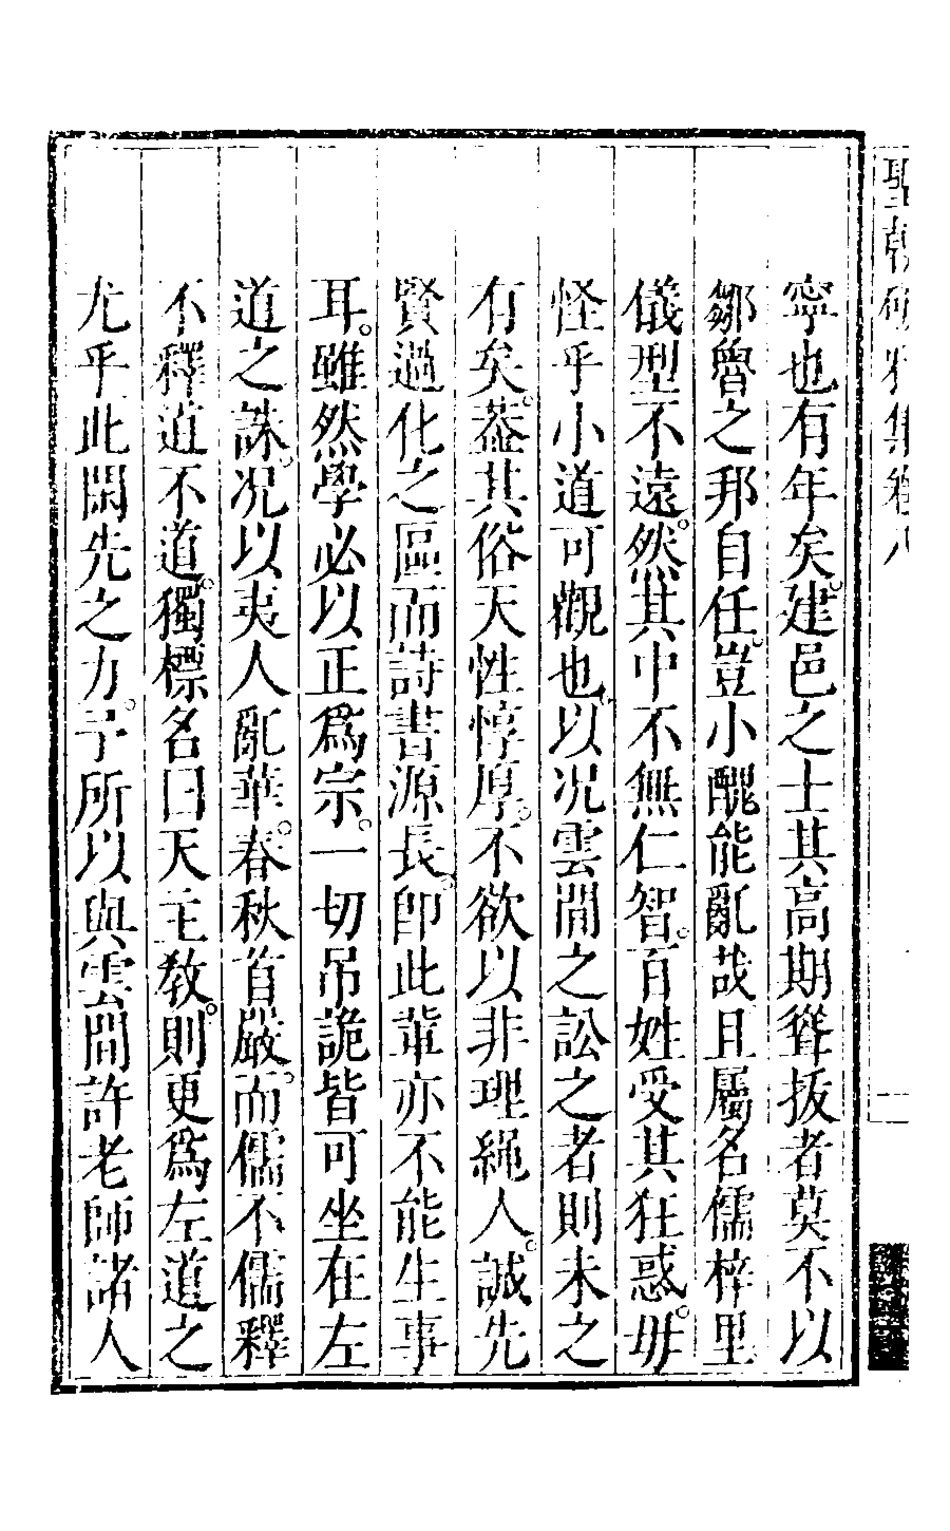 聖朝破邪集卷八
寧也有年矣。建邑之士其高期聳拔者莫不以
鄒魯之邦自任。豈小醜能亂哉且屬名儒梓里
儀型不遠。然其中不無仁智。百姓受其狂惑。毋
怪乎小道可觀也。以况雲間之訟之者則未之
有矣。葢其俗天性惇厚。不欲以非理繩人。誠先
賢過化之區而詩書源長。卽此輩亦不能生事
耳。雖然學必以正爲宗。一切吊詭皆可坐在左
道之誅。况以夷人亂華。春秋首嚴。而儒不儒釋
不釋道不道。獨標名曰天主教。則更爲左道之
尤乎此閑先之力。予所以與雲間許老師諸人